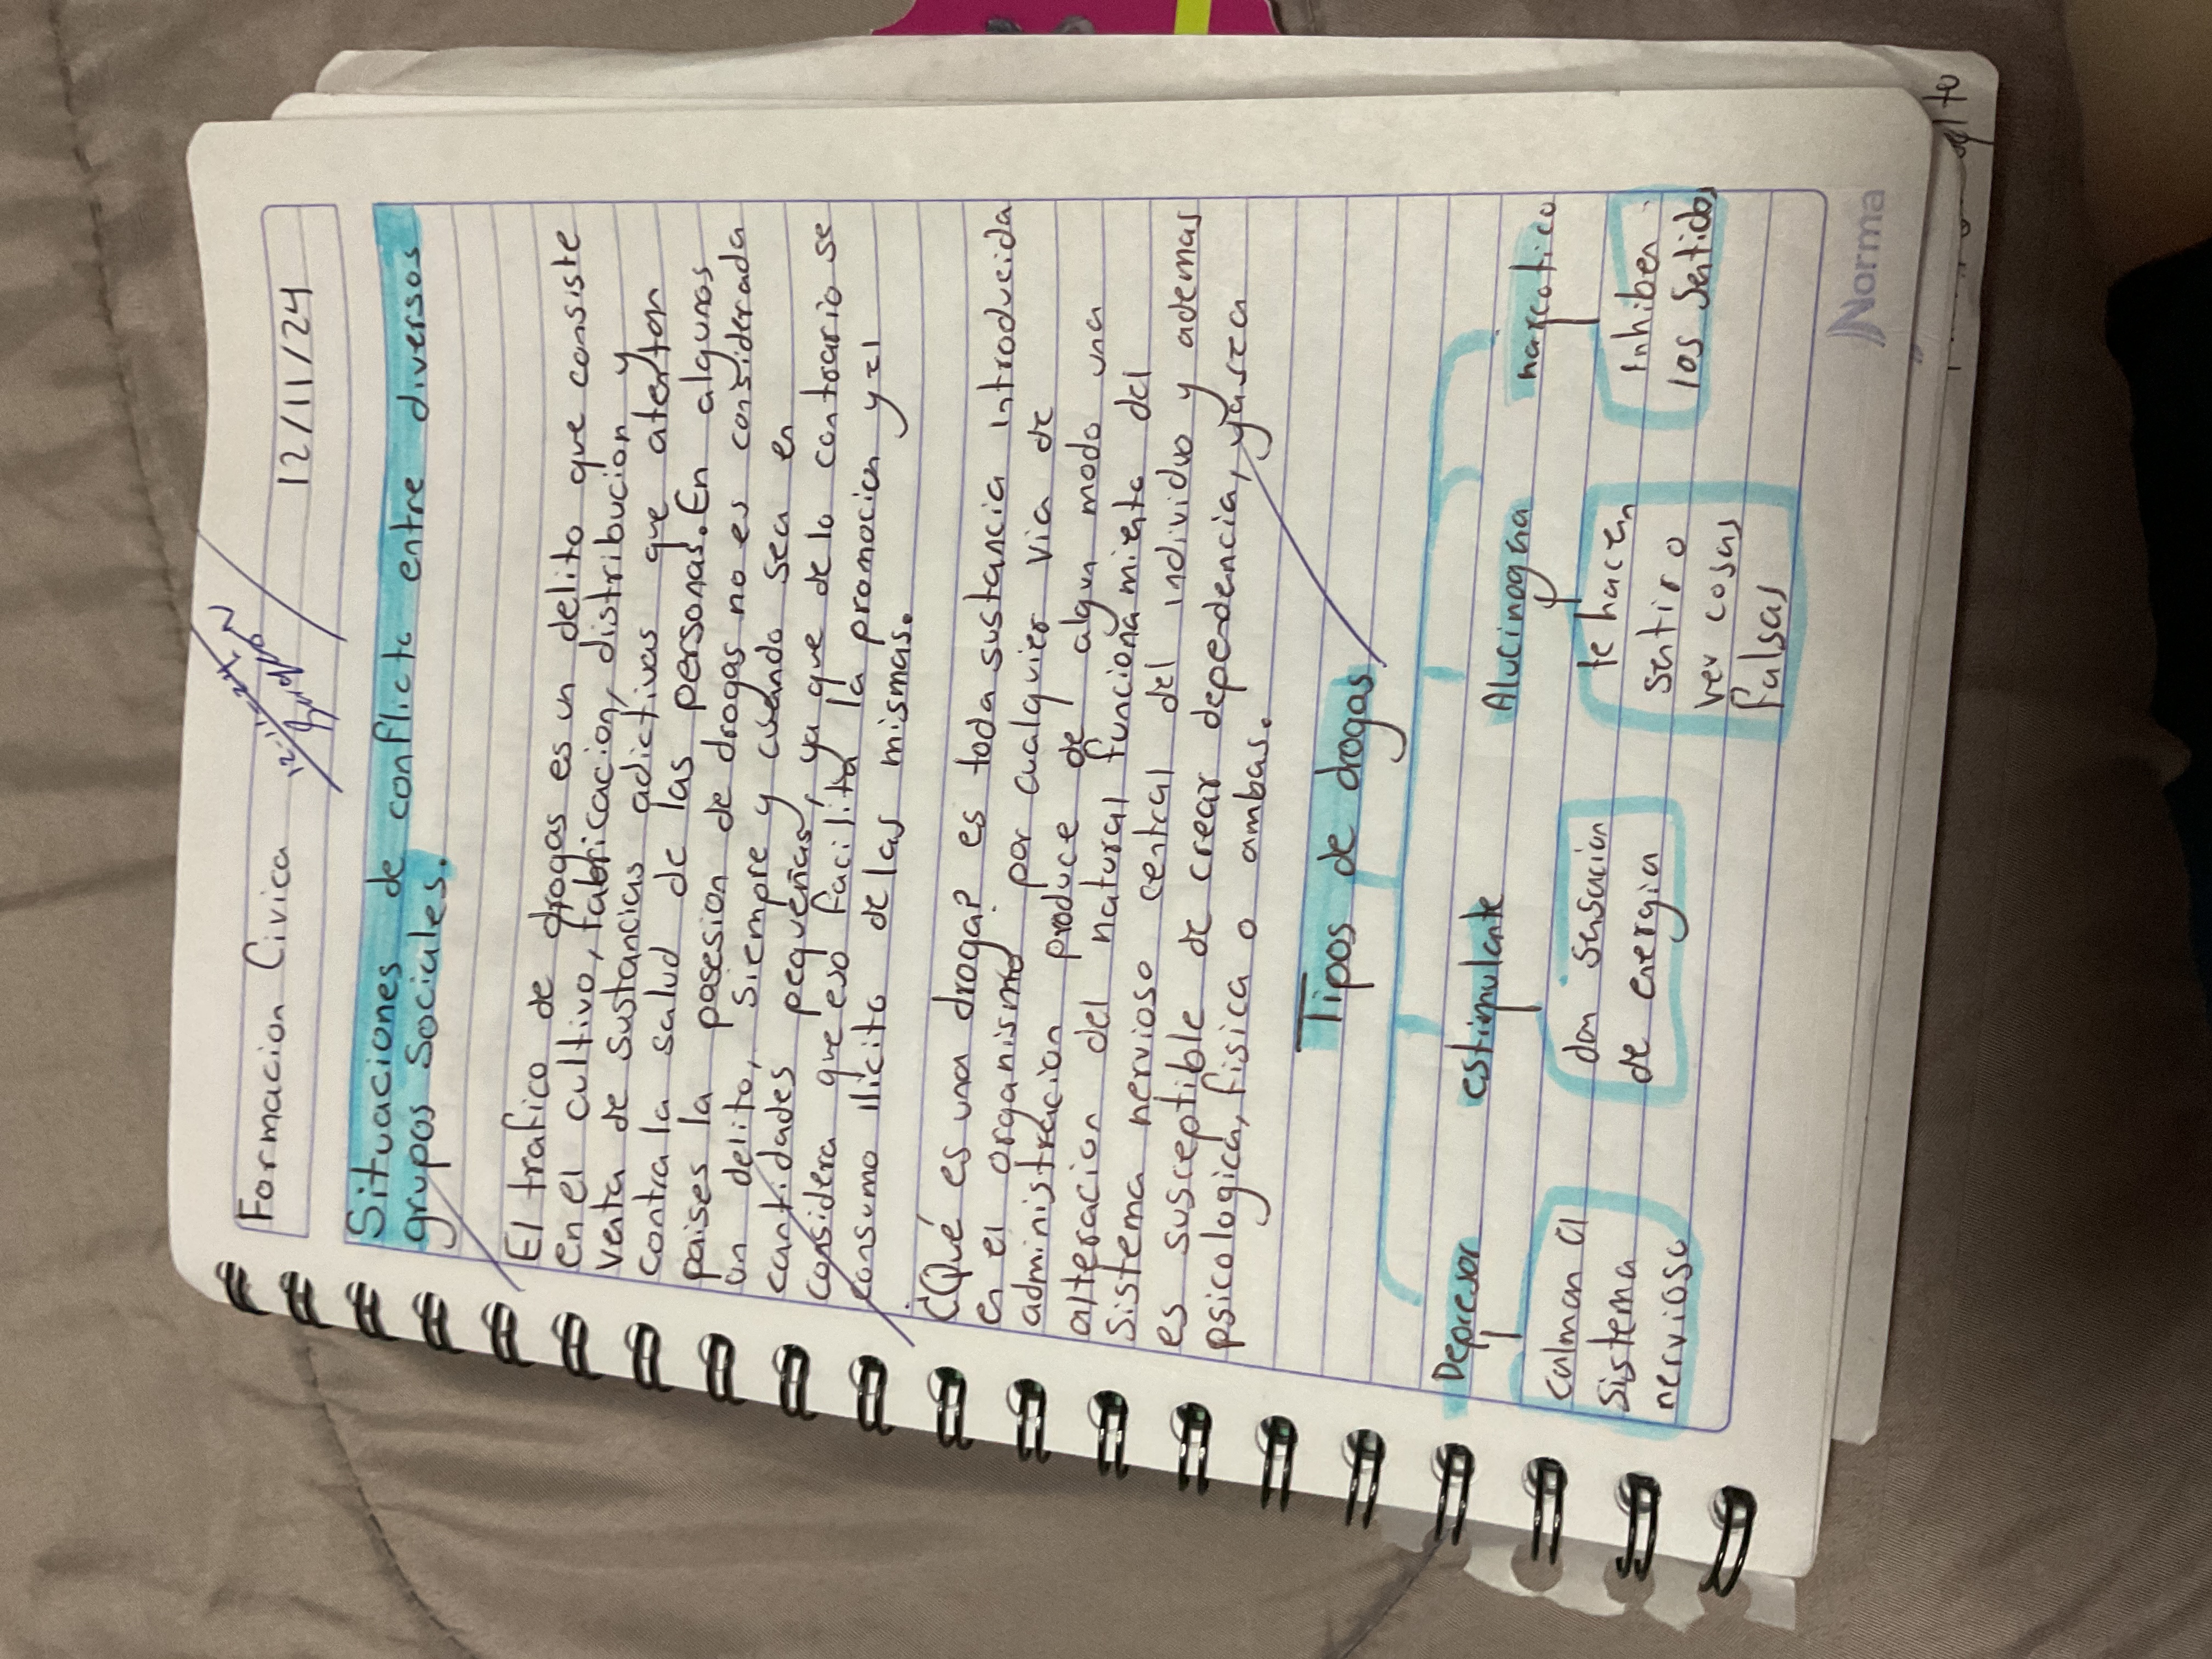 Formacion Civica
12/11/24
Situaciones de conflicto entre diversos
grupos sociales.
El trafico de drogas es un delito que consiste
en el cultivo, fabricacion, distribucion y
venta de sustancias adictivas que atentan
contra la salud de las personas. En algunos
paises la posesion de drogas no es considerada
un delito, siempre y cuando sea en
cantidades pequeñas, ya que de lo contrario se
considera que eso facilita la promocion y el
consumo ilicito de las mismas.
¿Qué es una droga? es toda sustancia introducida
en el organismo por cualquier via de
administracion produce de algun modo una
alteracion del natural funcionamiento del
sistema nervioso central del individuo y ademas
es susceptible de crear dependencia, ya sea
psicologica, fisica o ambas.
Tipos de drogas
Depresor estimulante Alucinogna narcotico
calman al
sistema
nervioso
dan sensacion
de energia
te hacen
sentir o
ver cosas
falsas
Inhiben
los sentidos
Norma